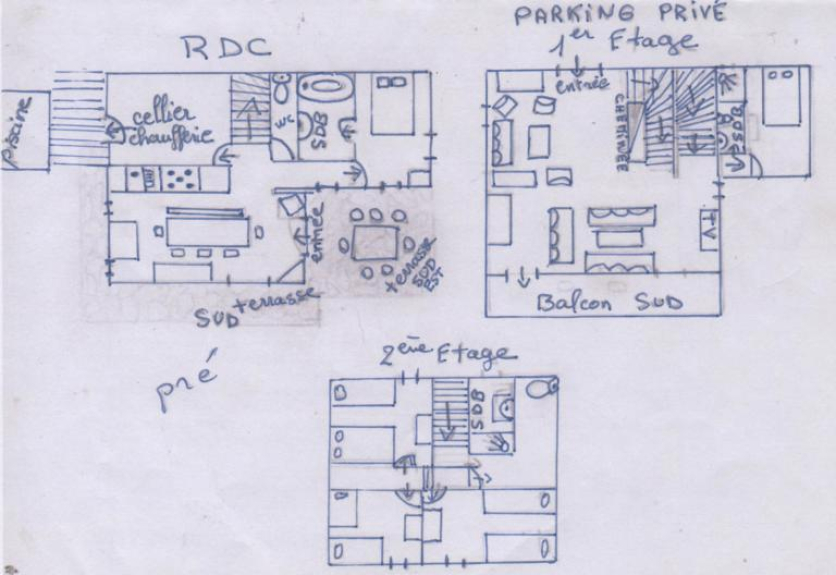 RDC
piscine
cellier
chaufferie
WC
SDB
entrée
terrasse
SUD
EST
terrasse
SUD
pré
PARKING PRIVÉ
1er Etage
entrée
CHEMINEE
SDB
TV
Balcon SUD
2ème Etage
SDB